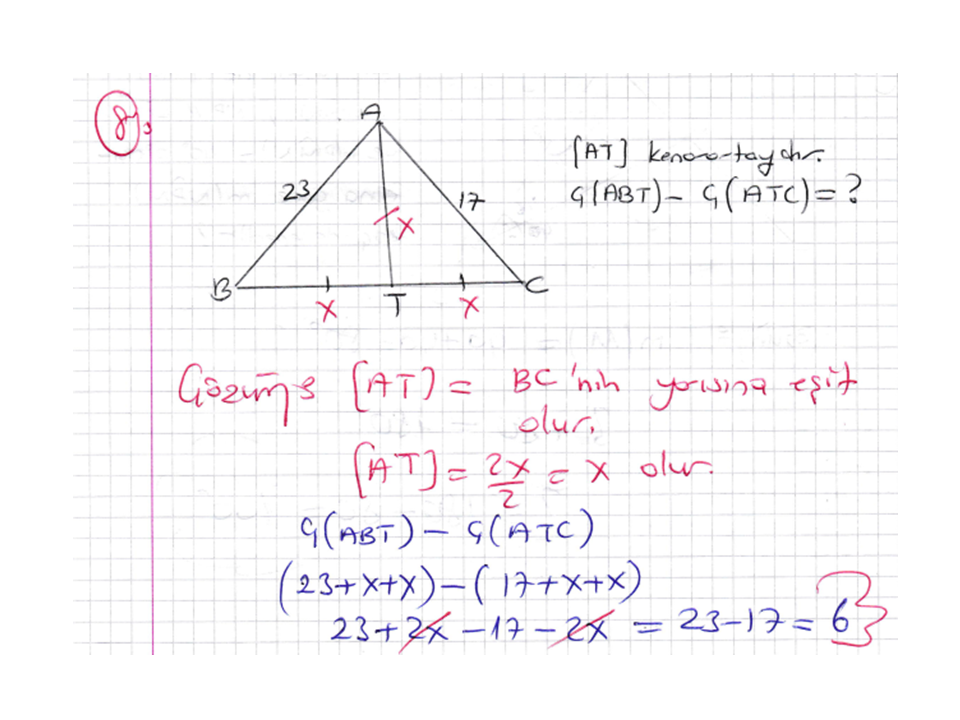 8.
A
[AT] kenarortaydır.
Ç(ABT) - Ç(ATC) = ?
23
17
x
B
T
C
x
x
Çözüm: [AT] = BC'nin yarısına eşit
olur.
[AT] = 2x/2 = x olur.
Ç(ABT) - Ç(ATC)
(23+x+x) - (17+x+x)
23+2x-17-2x = 23-17 = 6